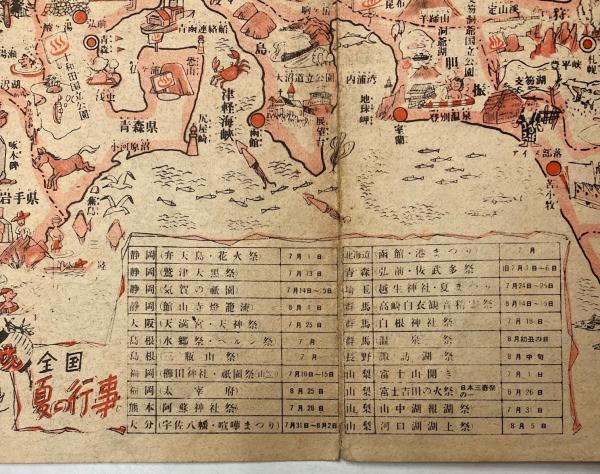 弘前
青森
浅虫
青函連絡船
恐山
青森県
小河原沼
尻屋崎
津軽海峡
函館
島
大沼道立公園
駒ヶ岳
展望台
内浦湾
地球岬
室蘭
登別温泉
洞爺湖
胆
振
支笏湖
定山渓
狩
札幌
豊平峡
アイヌ部落
苫小牧
岩手県
啄木碑
三陸
全国
夏の行事
静岡 (弁天島・花火祭 7月1日
静岡 (鷲津大黒祭) 7月13日
静岡 (気賀の祇園) 7月14日〜15日
静岡 (館山寺燈籠流) 8月1日
大阪 (天満宮・天神祭) 7月25日
島根 (水郷祭・ヘルン祭) 7月
島根 (三瓶山祭) 7月
福岡 (櫛田神社・祇園祭(山笠)) 7月10日〜15日
福岡 (太宰府) 8月25日
熊本 (阿蘇神社祭) 7月28日
大分 (宇佐八幡・喧嘩まつり) 7月31日〜8月2日
北海道 (函館・港まつり) 7月
青森 (弘前・佞武多祭) 旧7月1日〜6日
埼玉 (越生神社・夏まつり) 7月24日〜25日
群馬 (高崎白衣観音 8月14日〜15日
群馬 (白根神社祭) 7月18日
群馬 (温泉祭) 8月初丑の日
長野 (諏訪湖祭) 8月中旬
山梨 (富士山開き) 7月1日
山梨 (富士吉田の火祭 日本三奇祭の一) 8月26日
山梨 (山中湖報湖祭) 7月31日
山梨 (河口湖湖上祭) 8月5日